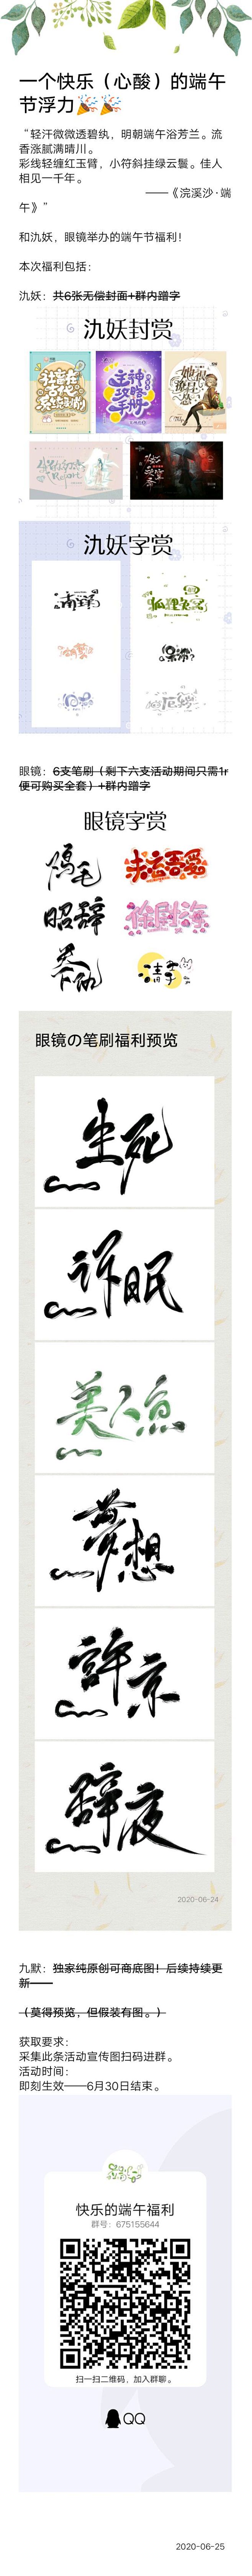 一个快乐（心酸）的端午
节浮力🎉🎉
“轻汗微微透碧纨，明朝端午浴芳兰。流
香涨腻满晴川。
彩线轻缠红玉臂，小符斜挂绿云鬟。佳人
相见一千年。
——《浣溪沙·端
午》”
和氿妖，眼镜举办的端午节福利！
本次福利包括：
氿妖：共6张无偿封面+群内蹭字
氿妖封赏
主神
攻略
手册
氿妖字赏
眼镜：6支笔刷（剩下六支活动期间只需1r
便可购买全套）+群内蹭字
眼镜字赏
昭辞
眼镜の笔刷福利预览
生死
诈眠
美人鱼
梦想
许京
辞夜
2020-06-24
九默：独家纯原创可商底图！后续持续更
新——
（莫得预览，但假装有图。）
获取要求：
采集此条活动宣传图扫码进群。
活动时间：
即刻生效——6月30日结束。
快乐的端午福利
群号：675155644
扫一扫二维码，加入群聊。
QQ
2020-06-25